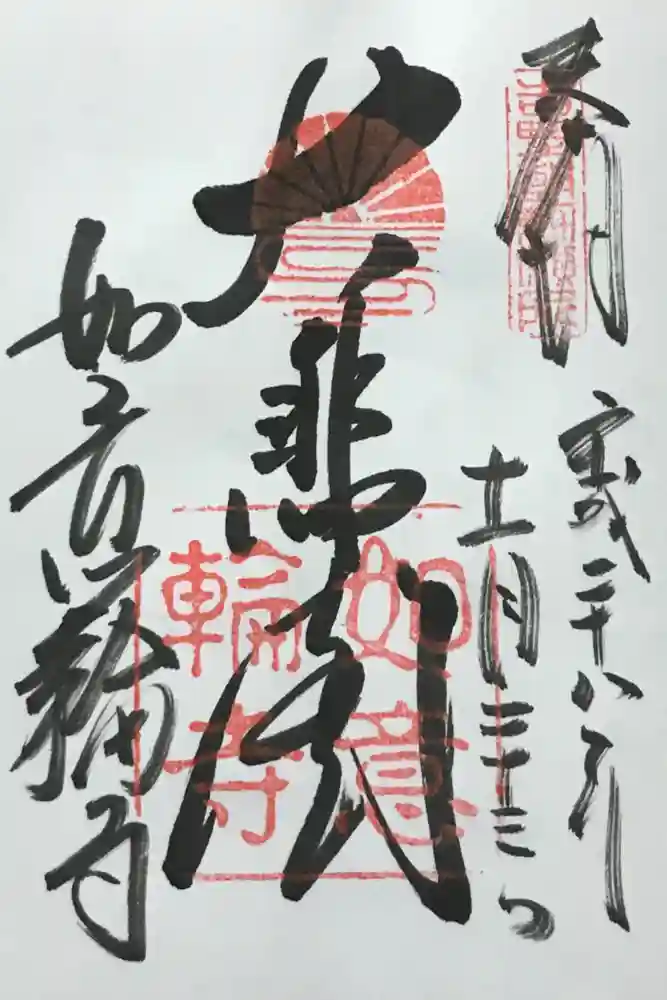 奉拝
平成二十八年
十一月二十三日
大悲閣
如意輪寺
如意
輪寺